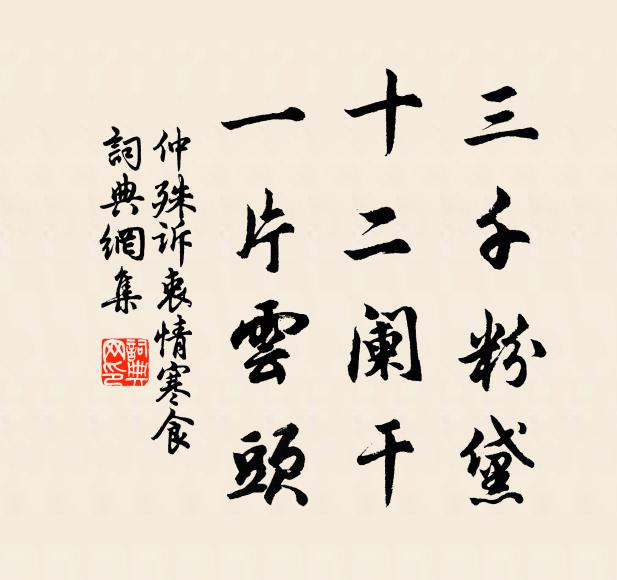 三千粉黛
十二阑干
一片雲頭
仲殊诉衷情寒食
詞典網集
詞典网印